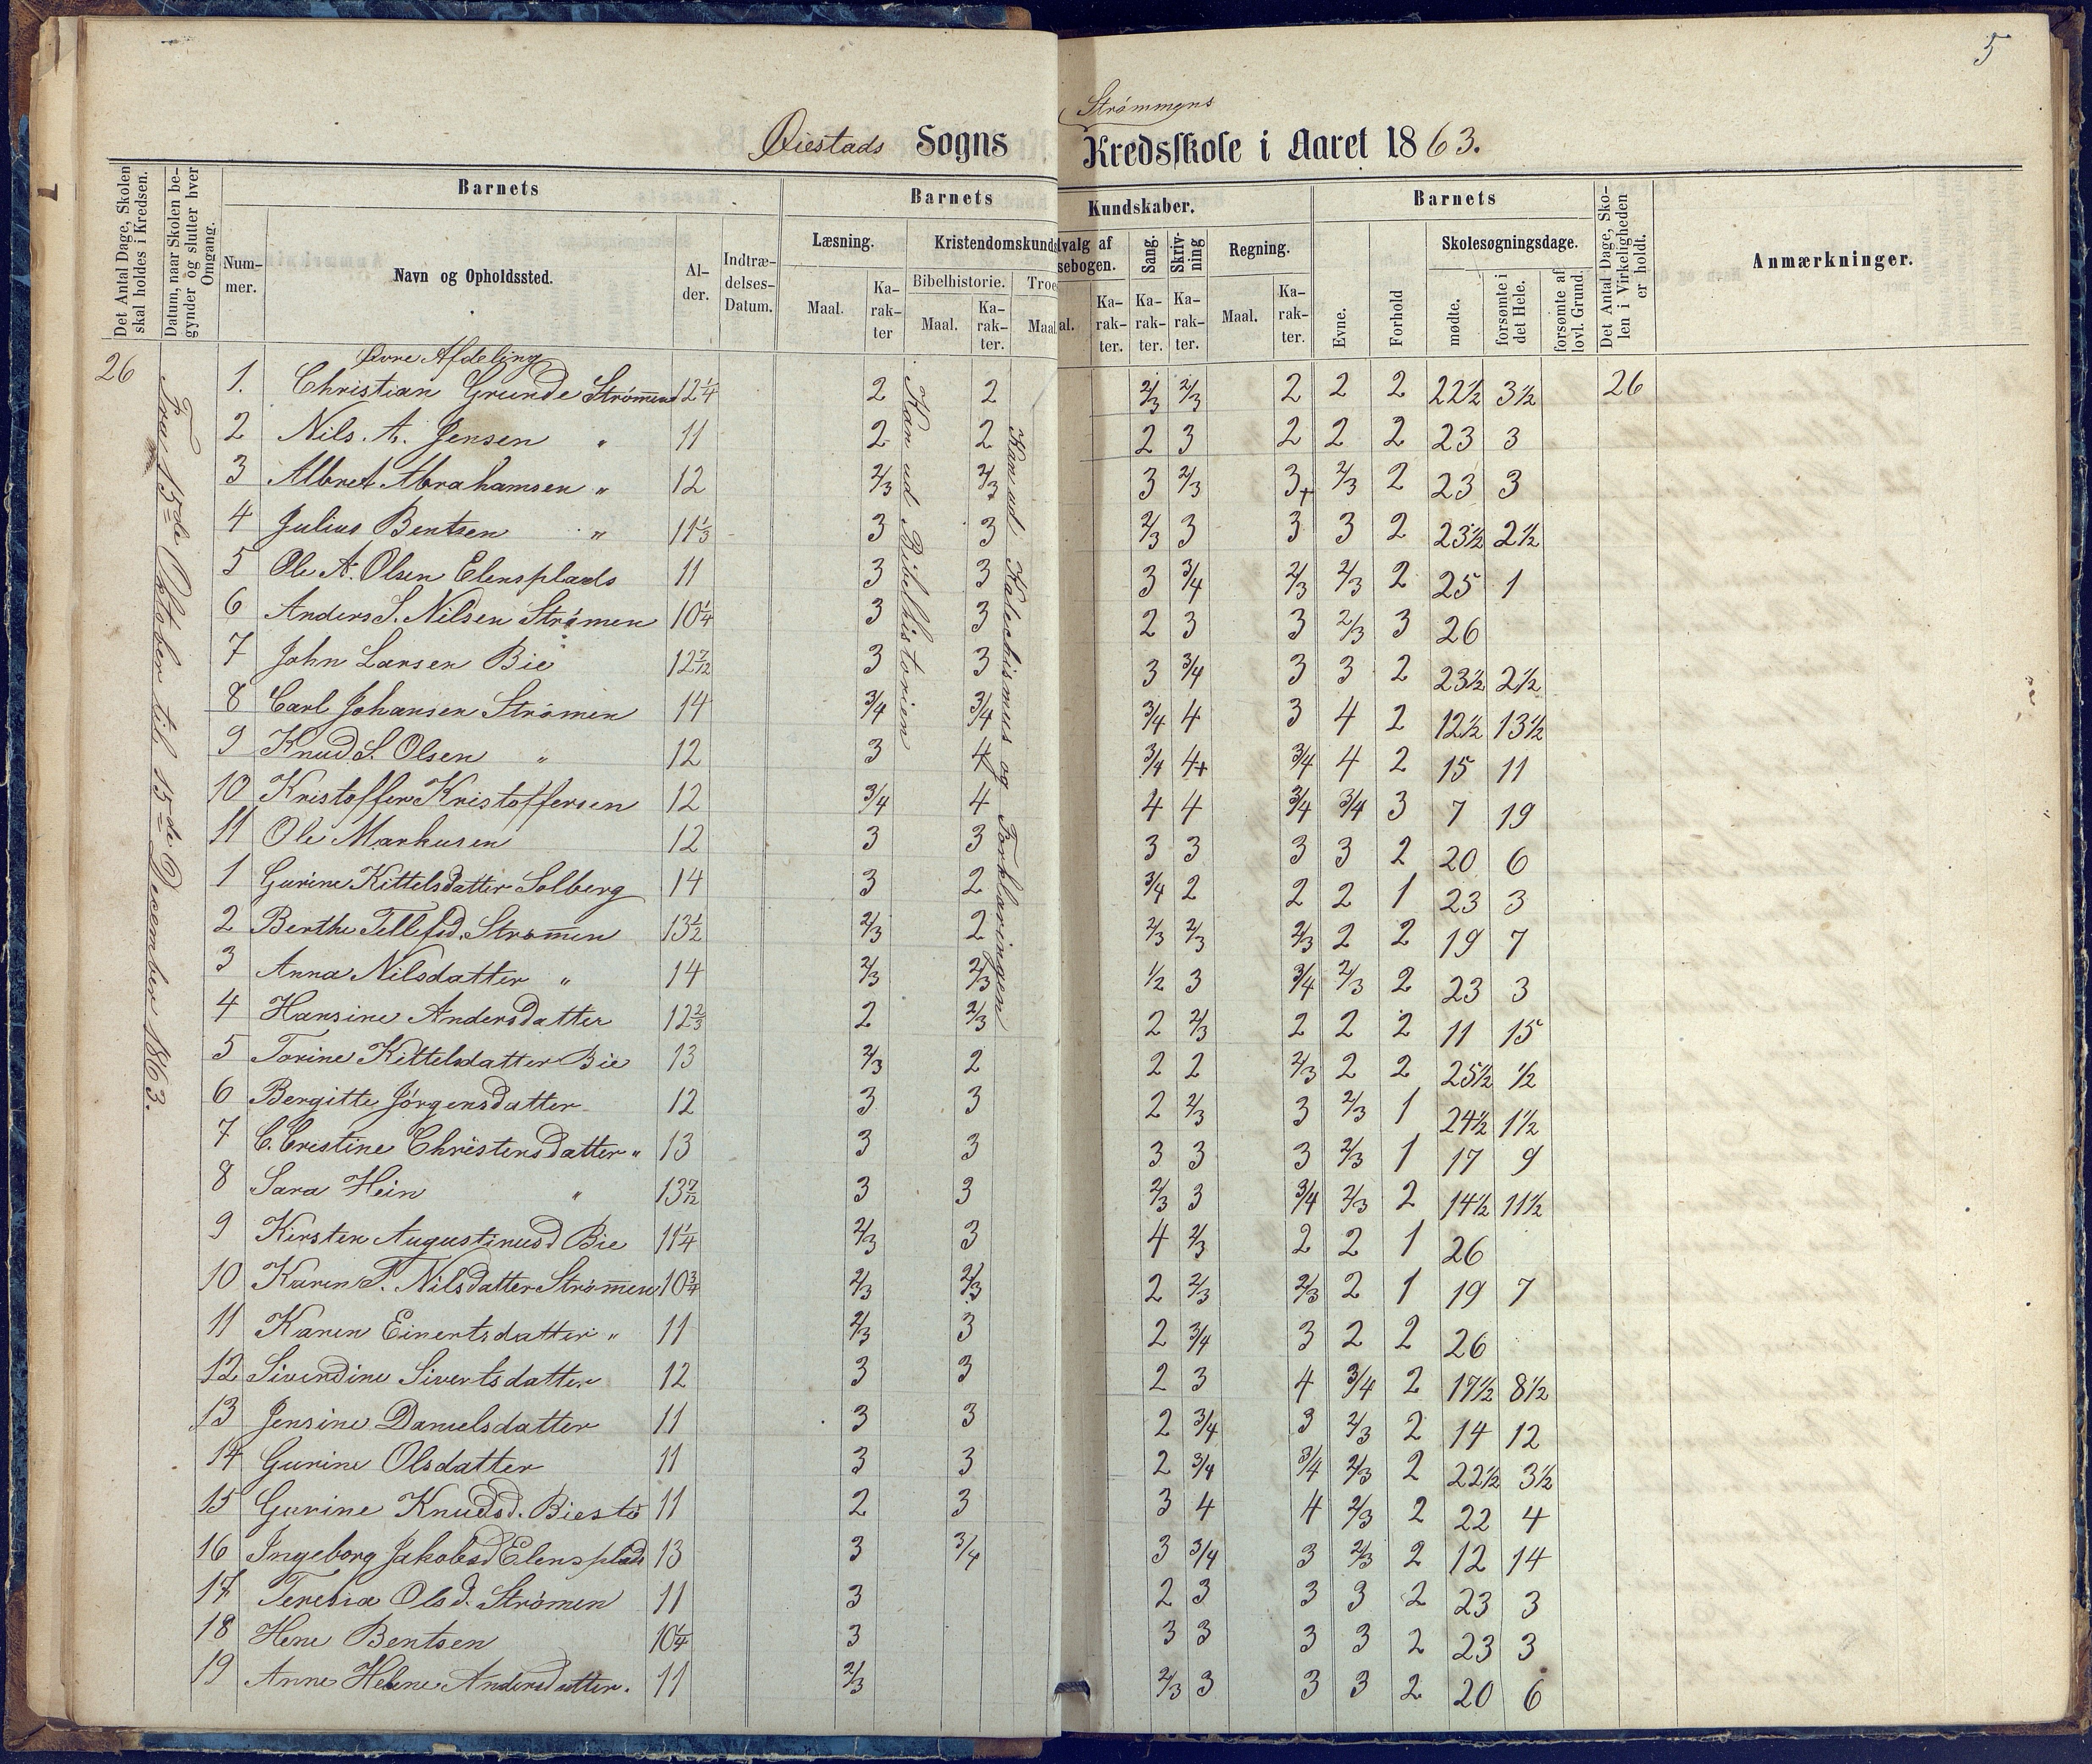 5
Strømmens
Øiestads Sogns Kredsskole i Aaret 1863.
Det Antal Dage, Skolen skal holdes i Kredsen.
Datum, naar Skolen begynder og slutter hver Omgang.
Barnets
Nummer.
Navn og Opholdssted.
Alder.
Indtrædelses-Datum.
Barnets Kundskaber.
Læsning.
Maal.
Karakter
Kristendomskunds
Bibelhistorie.
Maal.
Karakter.
Troe
Maal
dvalg af
sebogen.
al.
Karakter.
Sang.
Karakter.
Skrivning
Karakter.
Regning.
Maal.
Karakter.
Barnets
Evne.
Forhold
Skolesøgningsdage.
mødte.
forsømte i det Hele.
forsømte af lovl. Grund.
Det Antal Dage, Skolen i Virkeligheden er holdt.
Anmærkninger.
26
Fra 15de Oktober til 15de December 1863.
Kan ud Bibelhistorien
Kan ud Katechismus og Forklaringen
Øvre Afdeling
1. Christian Grunde Strømmen 12 1/4 2 2 2/3 2/3 2 2 2 22 1/2 3 1/2 26
2 Nils. A. Jensen " 11 2 2 2 3 2 2 2 23 3
3 Albret Abrahamsen " 12 2/3 2/3 3 2/3 3+ 2/3 2 23 3
4 Julius Bentsen " 11 1/3 3 3 2/3 3 3 3 2 23 1/2 2 1/2
5 Ole A. Olsen Elensplads 11 3 3 3 3/4 2/3 2/3 2 25 1
6 Anders S. Nilsen Strømen 10 1/4 3 3 2 3 3 2/3 3 26
7 John Larsen Bie 12 7/12 3 3 3 3/4 3 3 2 23 1/2 2 1/2
8 Carl Johansen Strømen 14 3/4 3/4 3/4 4 3 4 2 12 1/2 13 1/2
9 Knud S. Olsen " 12 3 4 3/4 4+ 3/4 4 2 15 11
10 Kristoffer Kristoffersen 12 3/4 4 4 4 3/4 3/4 3 7 19
11 Ole Markusen 12 3 3 3 3 3 3 2 20 6
1 Gurine Kittelsdatter Solberg 14 3 2 3/4 2 2 2 1 23 3
2 Berthe Tellefsd. Strømmen 13 1/2 2/3 2 2/3 2/3 2/3 2 2 19 7
3 Anna Nilsdatter " 14 2/3 2/3 1/2 3 3/4 2/3 2 23 3
4 Hansine Andersdatter 12 2/3 2 2/3 2 2/3 2 2 2 11 15
5 Torine Kittelsdatter Bie 13 2/3 2 2 2 2/3 2 2 25 1/2 1/2
6 Bergitte Jørgensdatter 12 3 3 2 2/3 3 2/3 1 24 1/2 1 1/2
7 C. Cristine Christensdatter " 13 3 3 3 3 3 2/3 1 17 9
8 Sara Hein " 13 7/12 3 3 2/3 3 3/4 2/3 2 14 1/2 11 1/2
9 Kirsten Augustinusd Bie 11 1/4 2/3 3 4 2/3 2 2 1 26
10 Karen T. Nilsdatter Strømmen 10 3/4 2/3 2/3 2 2/3 2/3 2 1 19 7
11 Karen Einertsdatter " 11 2/3 3 2 3/4 3 2 2 26
12 Sivendine Sivertsdatter 12 3 3 2 3 4 3/4 2 17 1/2 8 1/2
13 Jensine Danielsdatter 11 3 3 2 3/4 3 2/3 2 14 12
14 Gurine Olsdatter 11 3 3 2 3/4 3/4 2/3 2 22 1/2 3 1/2
15 Gurine Knudsd. Biestø 11 2 3 3 4 4 2/3 2 22 4
16 Ingeborg Jakobsd Elensplads 13 3 3/4 3 3/4 3 2/3 2 12 14
17 Teresia Olsd. Strømen 11 3 2 3 3 3 2 23 3
18 Hene Bentsen 10 1/4 3 3 3 3 3 2 23 3
19 Anne Helene Andersdatter. 11 2/3 2/3 3 3 3 2 20 6